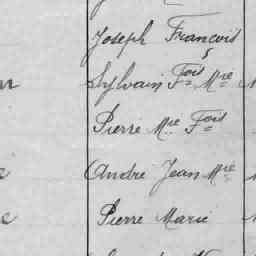 Joseph François
Sylvain Fois Mie
Pierre Mie Fois
André Jean Mie
Pierre Marie